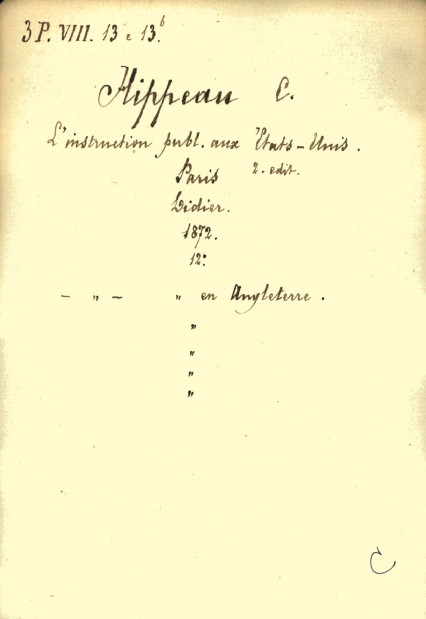 3 P. VIII. 13 e 13.b
Hippeau C.
L'instruction publ. aux États-Unis.
2. edit.
Paris
Didier.
1872.
12.°
– „ – „ en Angleterre.
„
„
„
„
C